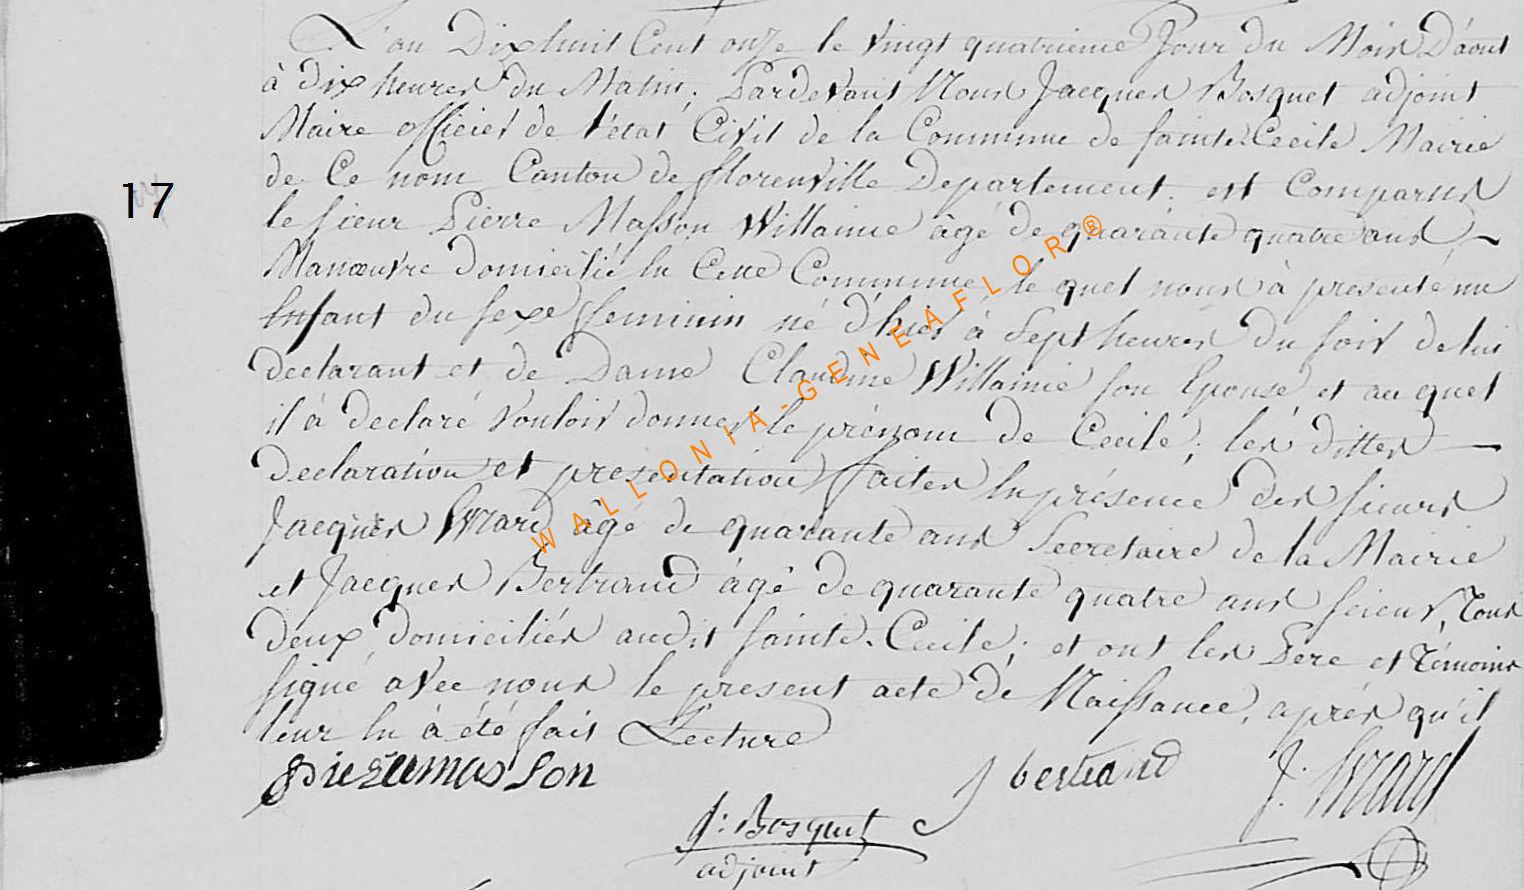 L'an Dixhuit Cent onze le Vingt quatrieme Jour du Mois D'aout
à dix heures du Matin; Pardevant Nous Jacques Bosquet adjoint
Maire officier de l'état Civil de la Commune de Sainte Cecile Mairie
de Ce nom Canton de florenville Departement; est Comparus
le sieur Pierre Masson Willaime âgé de quarante quatre ans
Manœuvre domicilié en Cette Commune, le quel nous à presenté un
Enfant du sexe feminin né d'hier à Sept heures du soir de lui
declarant et de Dame Claudine Willaime son Epouse et au quel
il à declaré Vouloir donner le prénom de Cecile; les dittes
declaration et presentation faites En présence des sieurs
Jacques âgé de quarante ans Secretaire de la Mairie
et Jacques Bertrand âgé de quarante quatre ans scieur, Tous
deux domiciliés audit Sainte Cecile; et ont les Pere et Témoins
signé avec nous le present acte de Naissance, après qu'il
leur En à été fait Lecture
17
pierre masson
J bertrand
J:
J: Bosquet
adjoint
WALLONIA-GENEAFLOR®